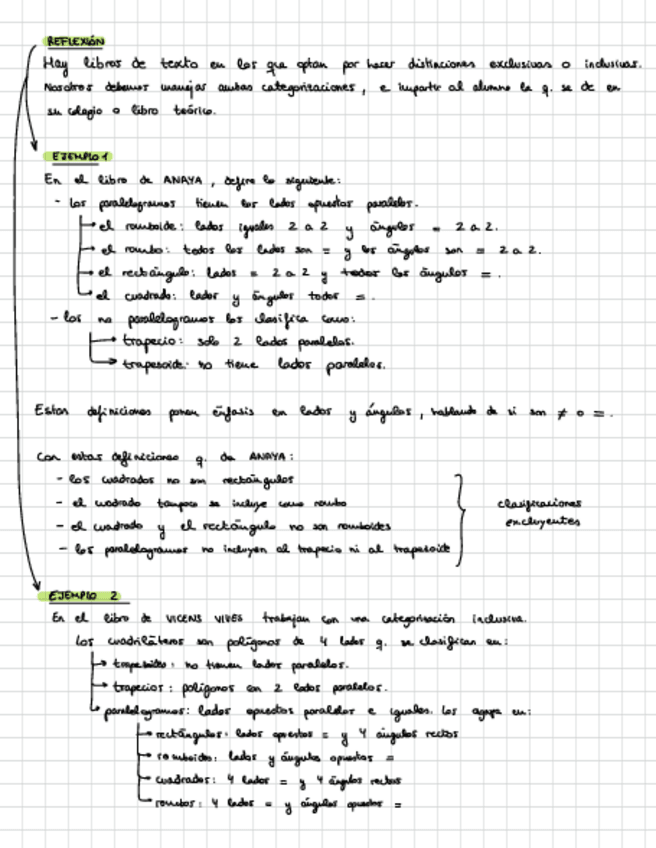 REFLEXIÓN
Hay libros de texto en los que optan por hacer distinciones exclusivas o inclusivas.
Nosotros debemos manejar ambas categorizaciones, e impartir al alumno la q. se de en
su colegio o libro teórico.
EJEMPLO 1
En el libro de ANAYA, define lo siguiente:
- los paralelogramos tienen los lados opuestos paralelos.
el romboide: lados iguales 2 a 2 y ángulos = 2 a 2.
el rombo: todos los lados son = y los ángulos son = 2 a 2.
el rectángulo: lados = 2 a 2 y todos los ángulos =.
el cuadrado: lados y ángulos todos =.
- los no paralelogramos los clasifica como:
trapecio: solo 2 lados paralelos.
trapezoide: no tiene lados paralelos.
Estas definiciones ponen énfasis en lados y ángulos, hablando de si son ≠ o =.
Con estas definiciones q. da ANAYA:
- los cuadrados no son rectángulos
- el cuadrado tampoco se incluye como rombo
- el cuadrado y el rectángulo no son romboides
- los paralelogramos no incluyen al trapecio ni al trapezoide
clasificaciones
excluyentes
EJEMPLO 2
En el libro de VICENS VIVES trabajan con una categorización inclusiva.
Los cuadriláteros son polígonos de 4 lados q. se clasifican en:
trapezoides: no tienen lados paralelos.
trapecios: polígonos con 2 lados paralelos.
paralelogramos: lados opuestos paralelos e iguales. Los agrupa en:
rectángulos: lados opuestos = y 4 ángulos rectos
romboides: lados y ángulos opuestos =
cuadrados: 4 lados = y 4 ángulos rectos
rombos: 4 lados = y ángulos opuestos =